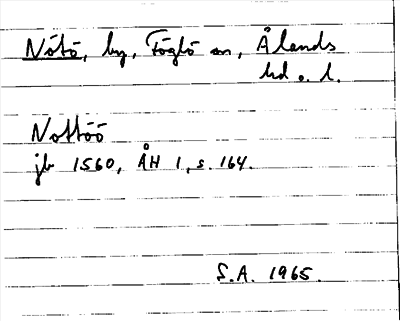 Nötö, by, Föglö sn, Ålands
hd o. l.
Nottöö
jb 1560, ÅH 1, s. 164.
S.A. 1965.